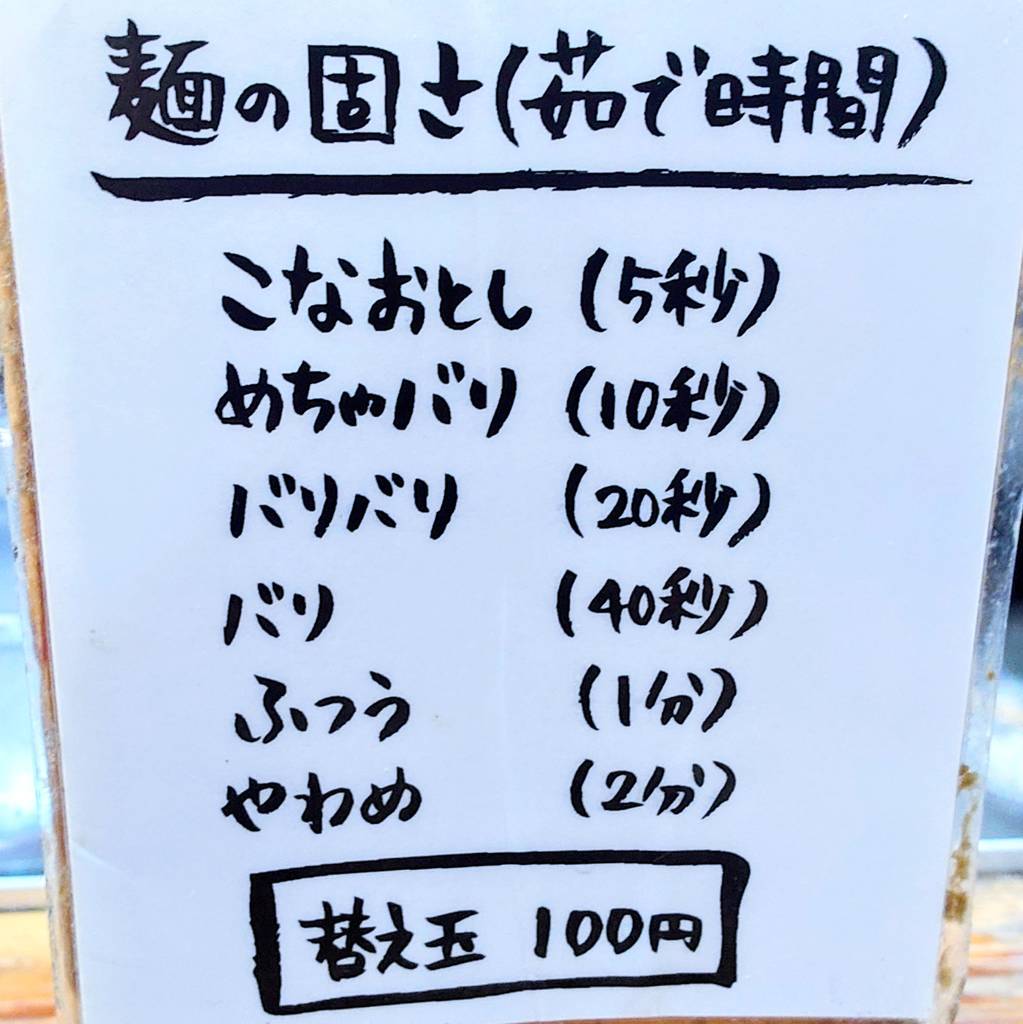 麺の固さ(茹で時間)
こなおとし (5秒)
めちゃバリ (10秒)
バリバリ (20秒)
バリ (40秒)
ふつう (1分)
やわめ (2分)
替え玉 100円